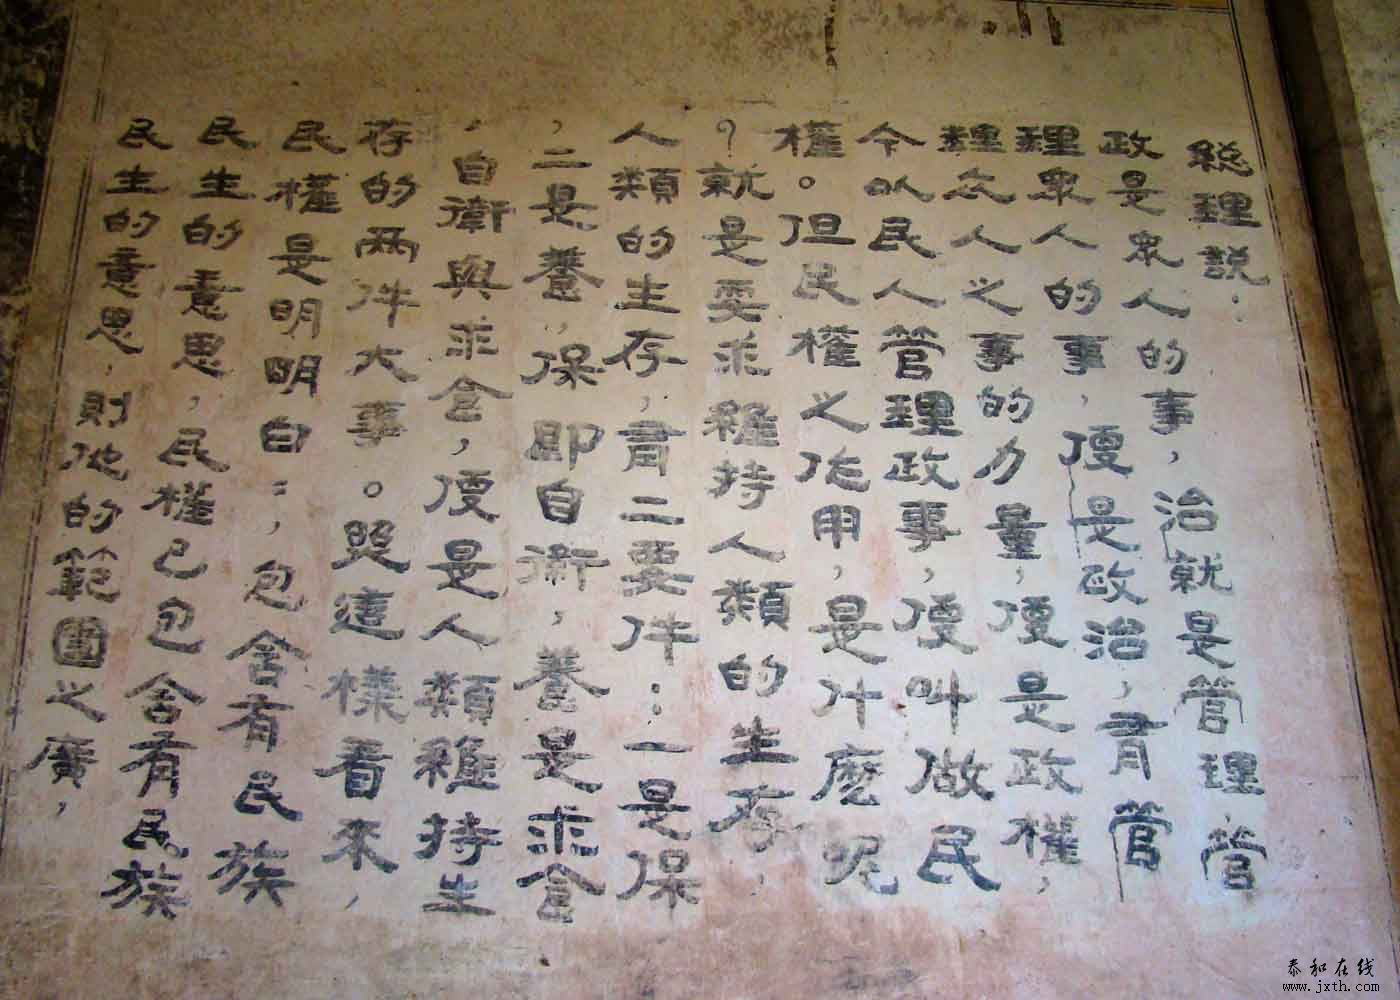 總理説：
政是衆人的事，治就是管理管
理衆人的事，便是政治，有管
理众人之事的力量，便是政權，
今以民人管理政事，便叫做民
權。但民權之作用，是什麽呢
？就是要求維持人類的生存，
人類的生存，有二要件：一是保
，二是養，保即自衛，養是求食
，自衛與求食，便是人類維持生
存的兩件大事。照這樣看來，
民權是明明白=，包含有民族
民生的意思，民權已包含有民族
民生的意思，則他的範圍之廣，
泰和在线
www.jxth.com